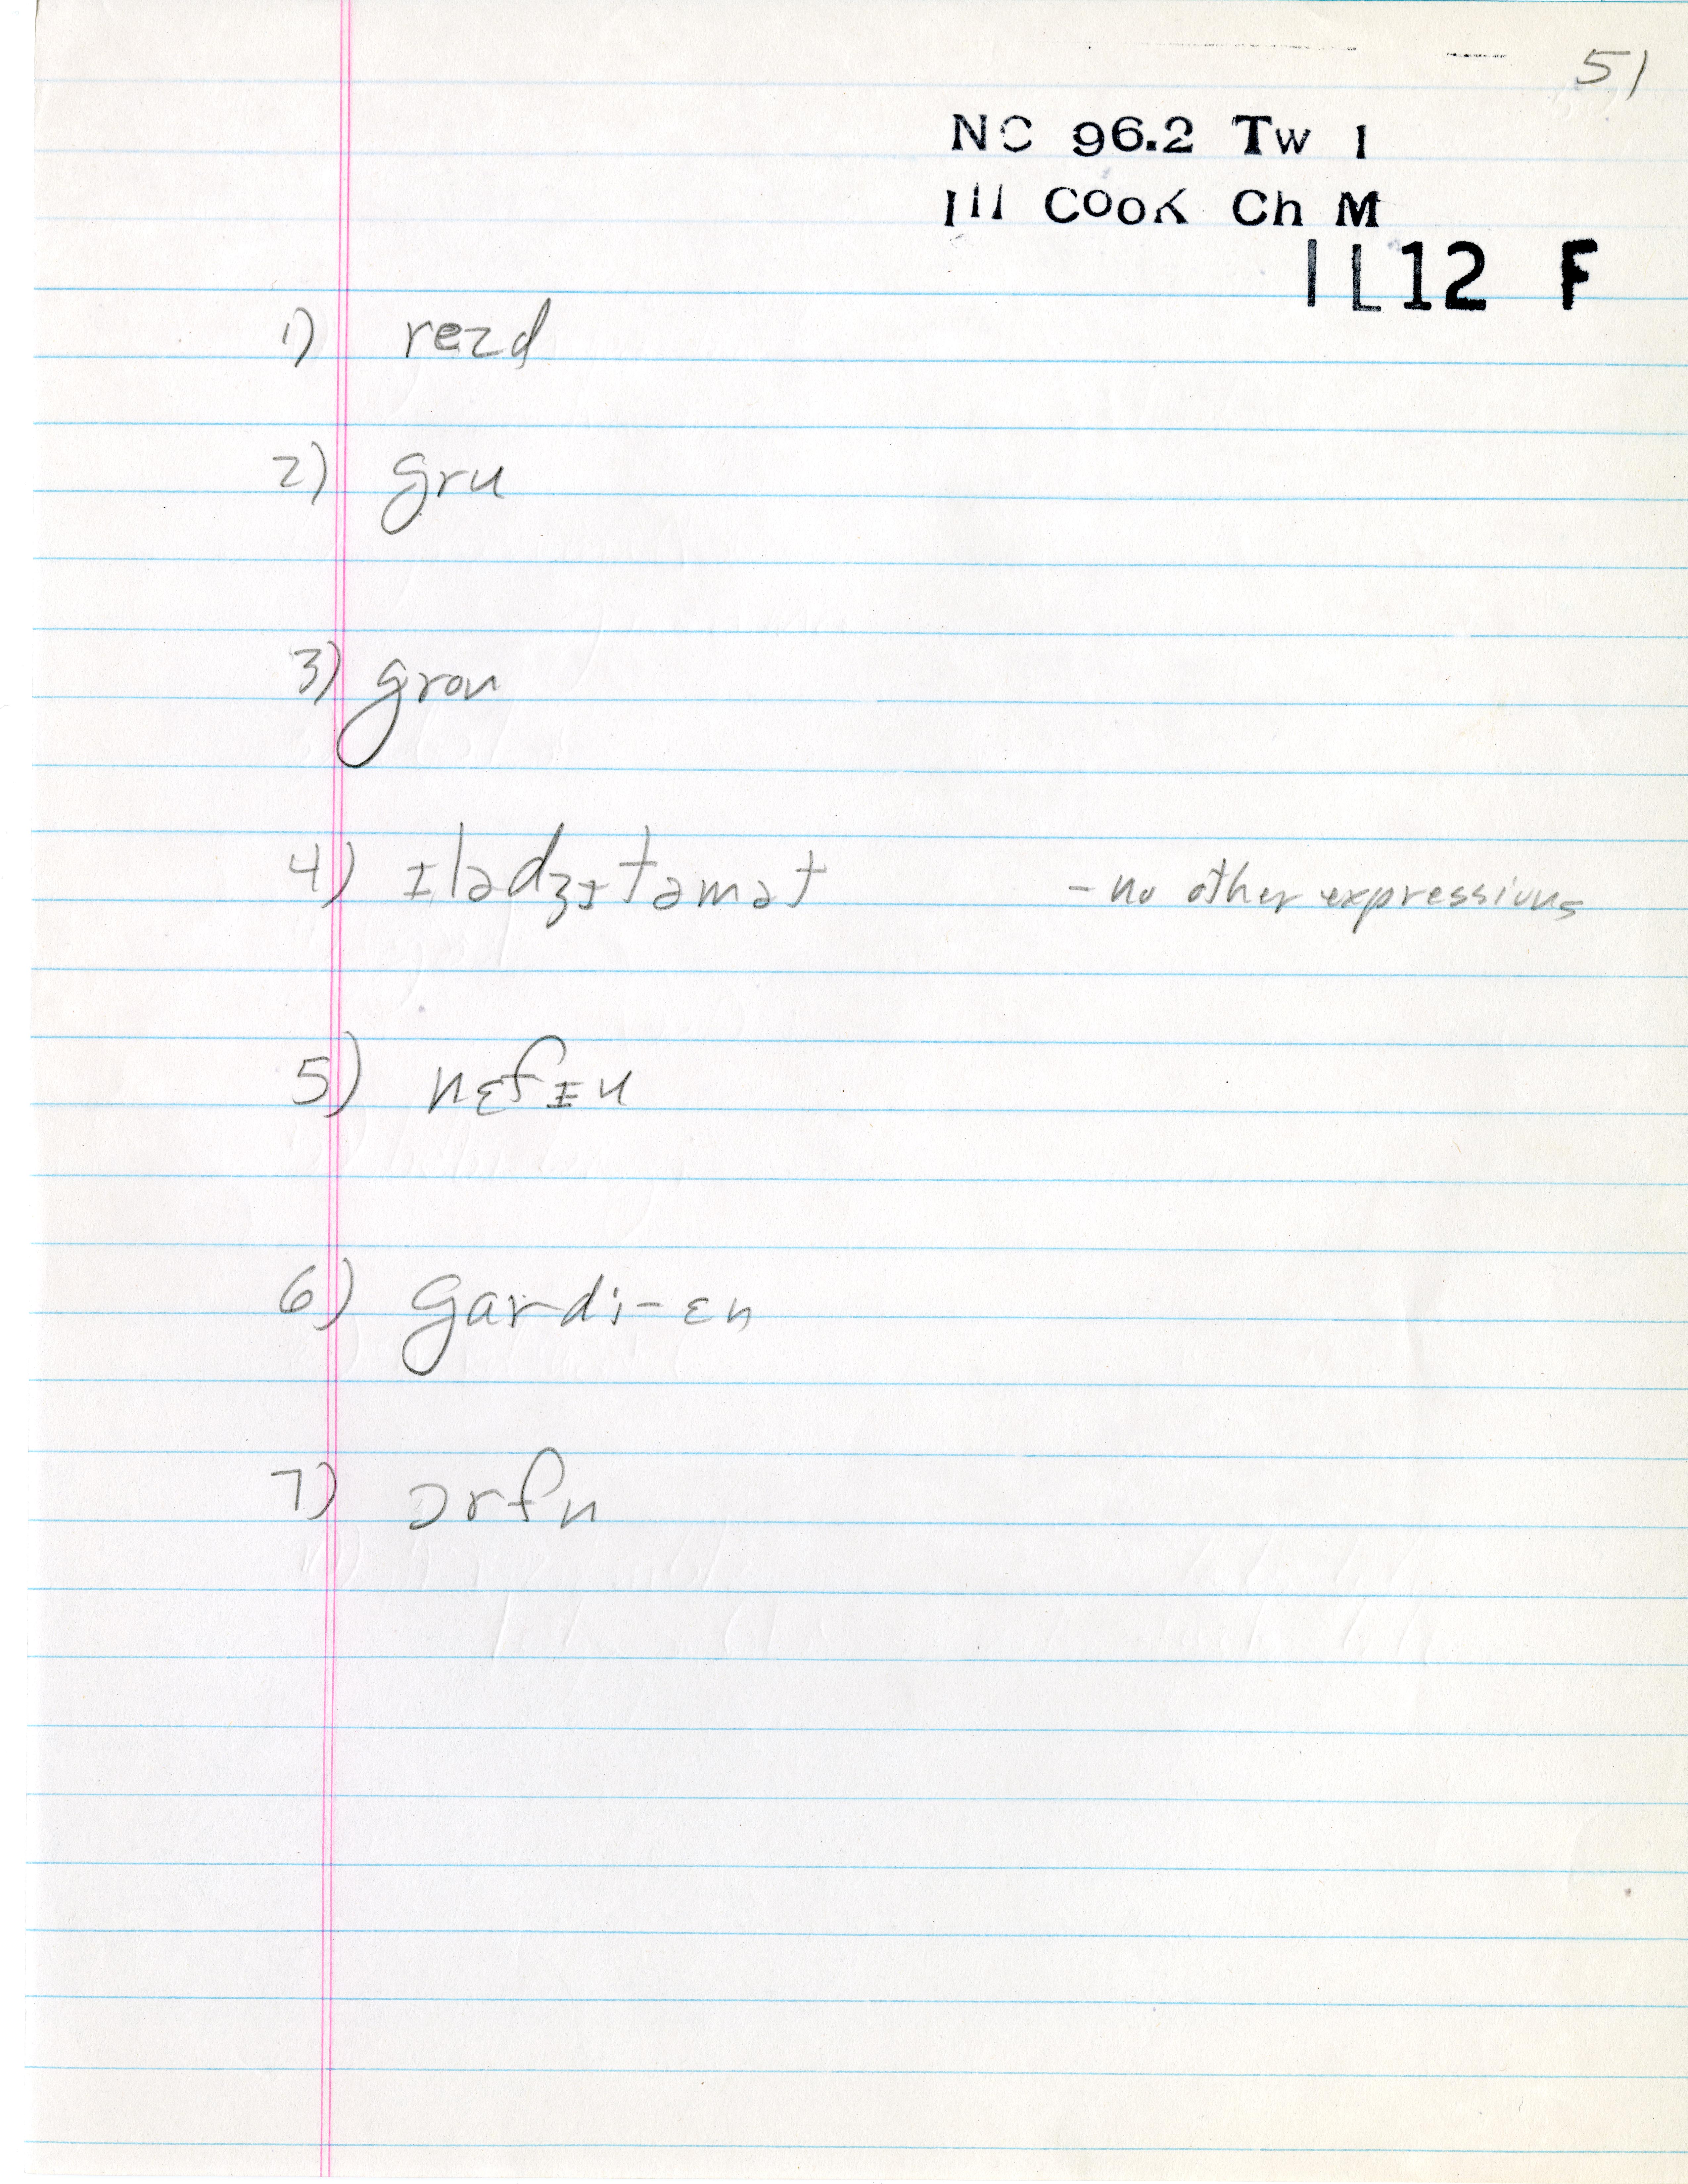 51
NC 96.2 Tw 1
Ill Cook Ch M
IL12 F
1) rezd
2) gru
3) gron
4) ɪlədʒɪtəmət - no other expressions
5) nɛfɪu
6) gardi-ɛn
7) ɔrfn